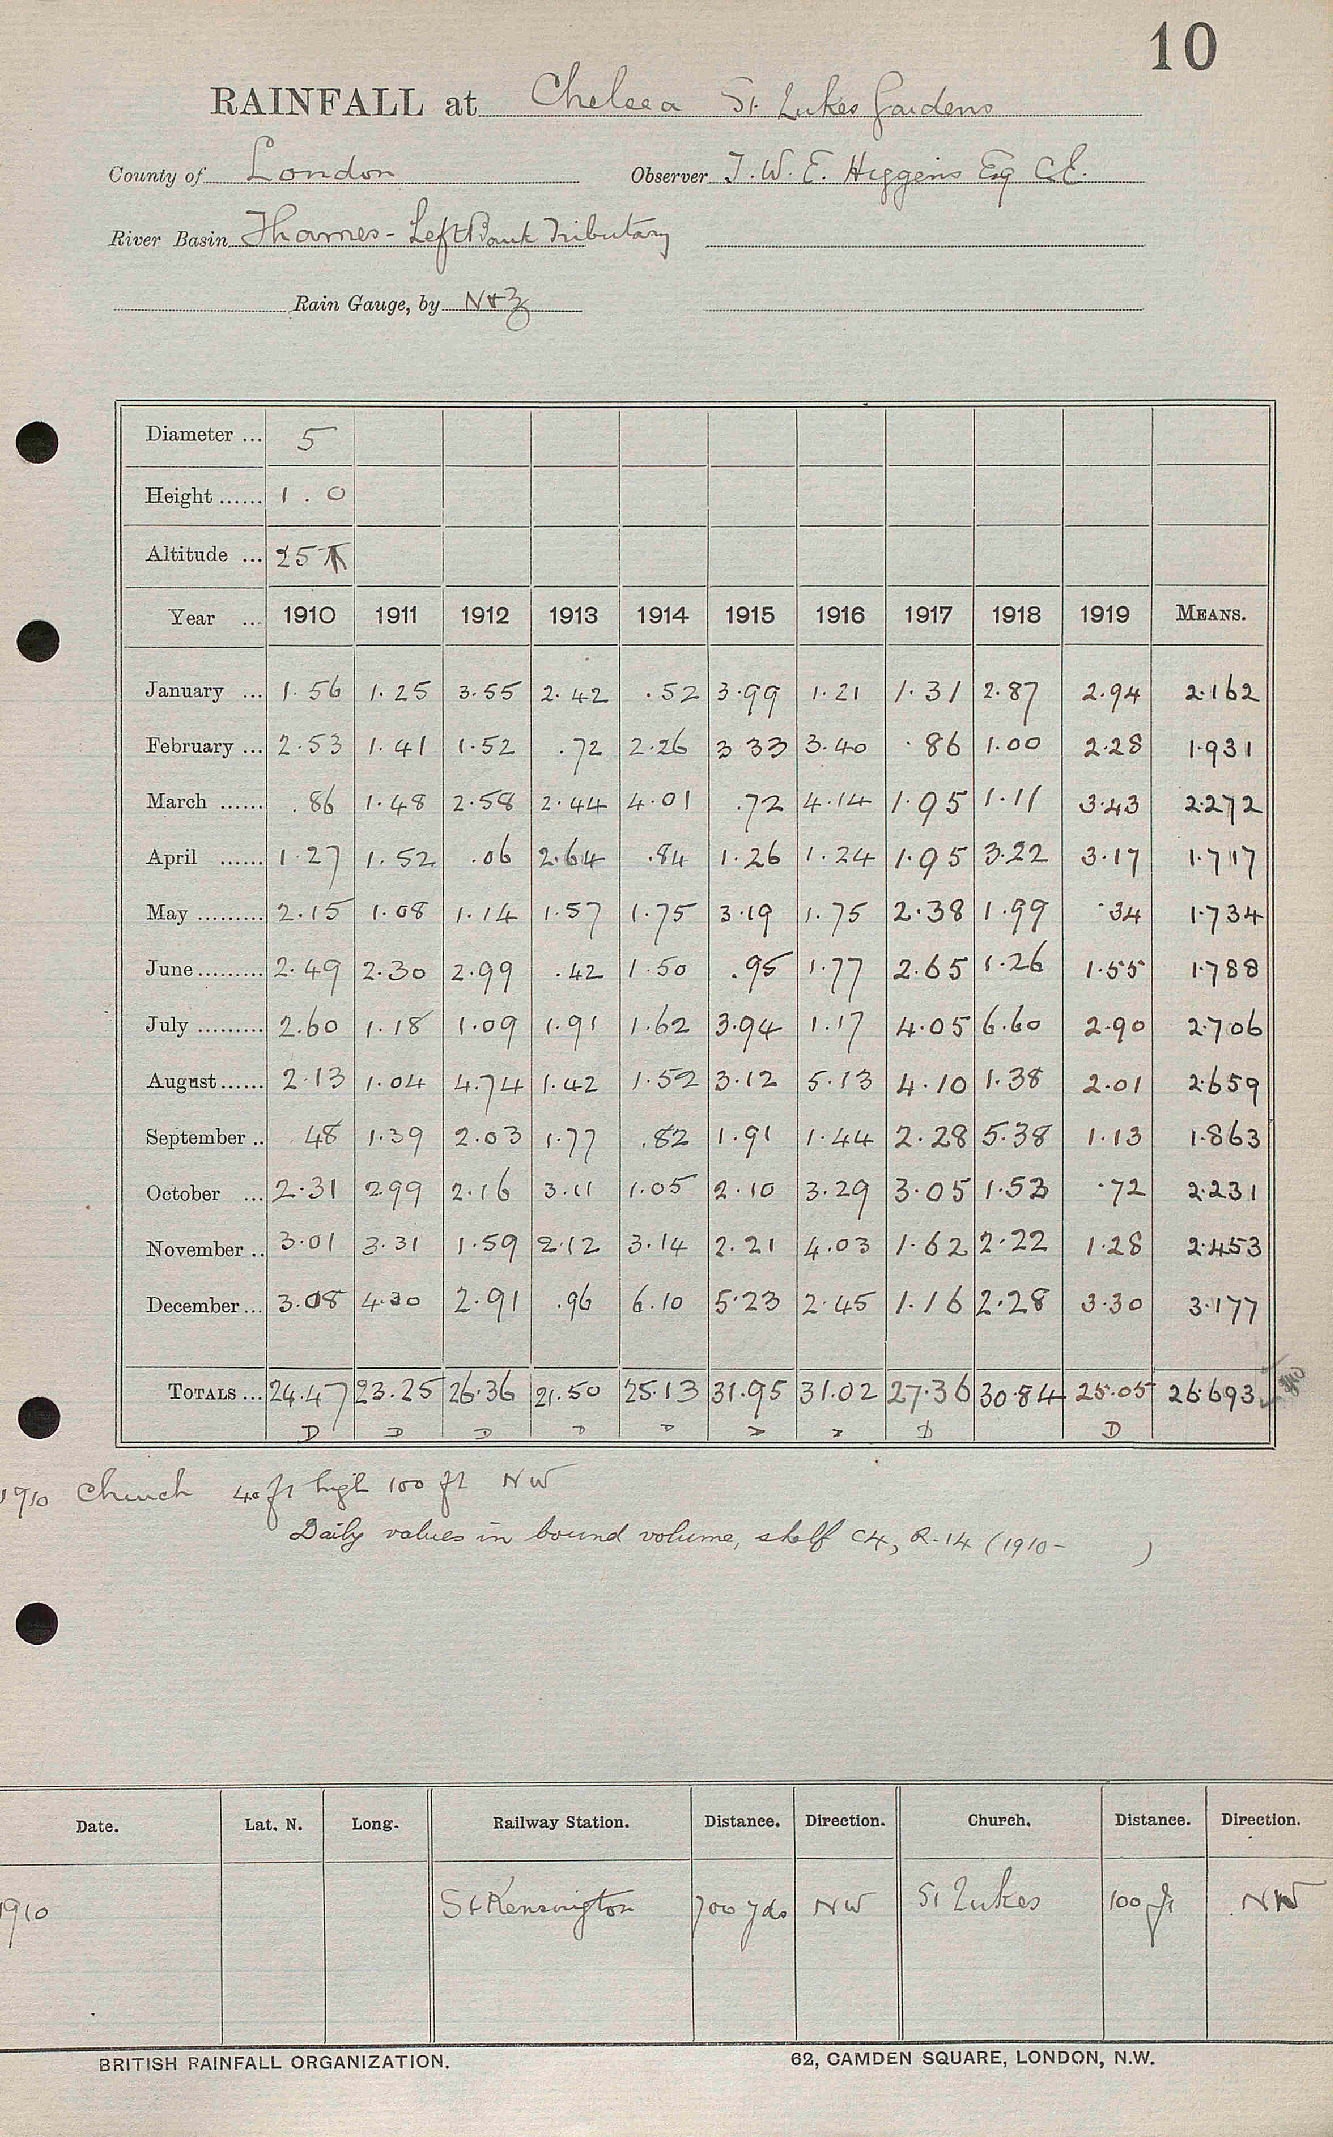 10
RAINFALL at Chelsea St. Lukes Gardens
County of London Observer T. W. E. Higgens Esq C.E.
River Basin Thames - Left Bank Tributary
Rain Gauge, by N & Z
Diameter ... 5
Height ...... 1 . 0
Altitude ... 25
Year ... 1910 1911 1912 1913 1914 1915 1916 1917 1918 1919 MEANS.
January ... 1.56 1.25 3.55 2.42 .52 3.99 1.21 1.31 2.87 2.94 2.162
February ... 2.53 1.41 1.52 .72 2.26 3 33 3.40 .86 1.00 2.28 1.931
March ...... .86 1.48 2.58 2.44 4.01 .72 4.14 1.95 1.11 3.43 2.272
April ...... 1.27 1.52 .06 2.64 .84 1.26 1.24 1.95 3.22 3.17 1.717
May .......... 2.15 1.08 1.14 1.57 1.75 3.19 1.75 2.38 1.99 .34 1.734
June ......... 2.49 2.30 2.99 .42 1.50 .95 1.77 2.65 1.26 1.55 1.788
July .......... 2.60 1.18 1.09 1.91 1.62 3.94 1.17 4.05 6.60 2.90 2.706
August ...... 2.13 1.04 4.74 1.42 1.52 3.12 5.13 4.10 1.38 2.01 2.659
September .. 48 1.39 2.03 1.77 .82 1.91 1.44 2.28 5.38 1.13 1.863
October ... 2.31 2 99 2.16 3.11 1.05 2.10 3.29 3.05 1.53 .72 2.231
November .. 3.01 3.31 1.59 2.12 3.14 2.21 4.03 1.62 2.22 1.28 2.453
December ... 3.08 4.30 2.91 .96 6.10 5.23 2.45 1.16 2.28 3.30 3.177
TOTALS ... 24.47 23.25 26.36 21.50 25.13 31.95 31.02 27.36 30.84 25.05 26.693
D D D D D D D D D
1910 Church 40 ft high 100 ft NW
Daily values in bound volume, shelf C4, R.14 (1910- )
Date. Lat. N. Long. Railway Station. Distance. Direction. Church. Distance. Direction.
1910 St Kensington 700 yds NW St Lukes 100 ft NW
BRITISH RAINFALL ORGANIZATION. 62, CAMDEN SQUARE, LONDON, N.W.